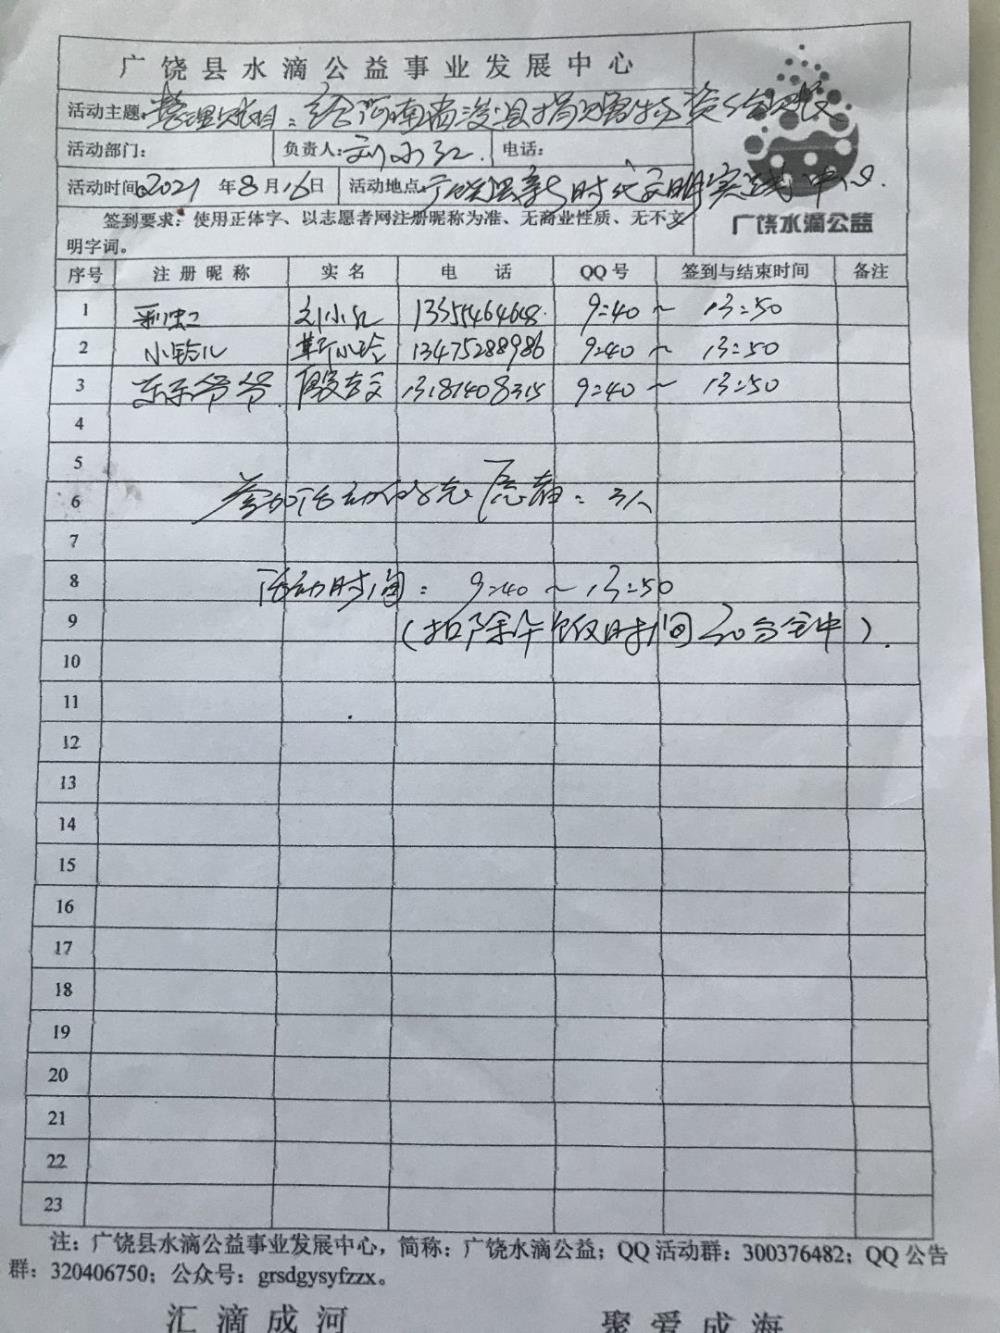 广饶县水滴公益事业发展中心
活动主题:整理账目:给河南省浚县捐赠物资
活动部门: 负责人:刘小红. 电话:
活动时间:2021年8月16日 活动地点:广饶县新时代文明实践中心.
签到要求:使用正体字、以志愿者网注册昵称为准、无商业性质、无不文
明字词。
广饶水滴公益
序号 注册昵称 实名 电话 QQ号 签到与结束时间 备注
1 刘小红 9:40~13:50
2 小铃儿 靳小玲 13475288986 9:40~13:50
3 东东爷爷 13181408315 9:40~13:50
4
5
6 参加活动的志愿者:3人
7
8 活动时间:9:40~13:50
9 (扣除午饭时间30分钟).
10
11
12
13
14
15
16
17
18
19
20
21
22
23
注:广饶县水滴公益事业发展中心,简称:广饶水滴公益;QQ活动群:300376482;QQ公告
群:320406750;公众号:grsdgysyfzzx。
汇滴成河 聚爱成海